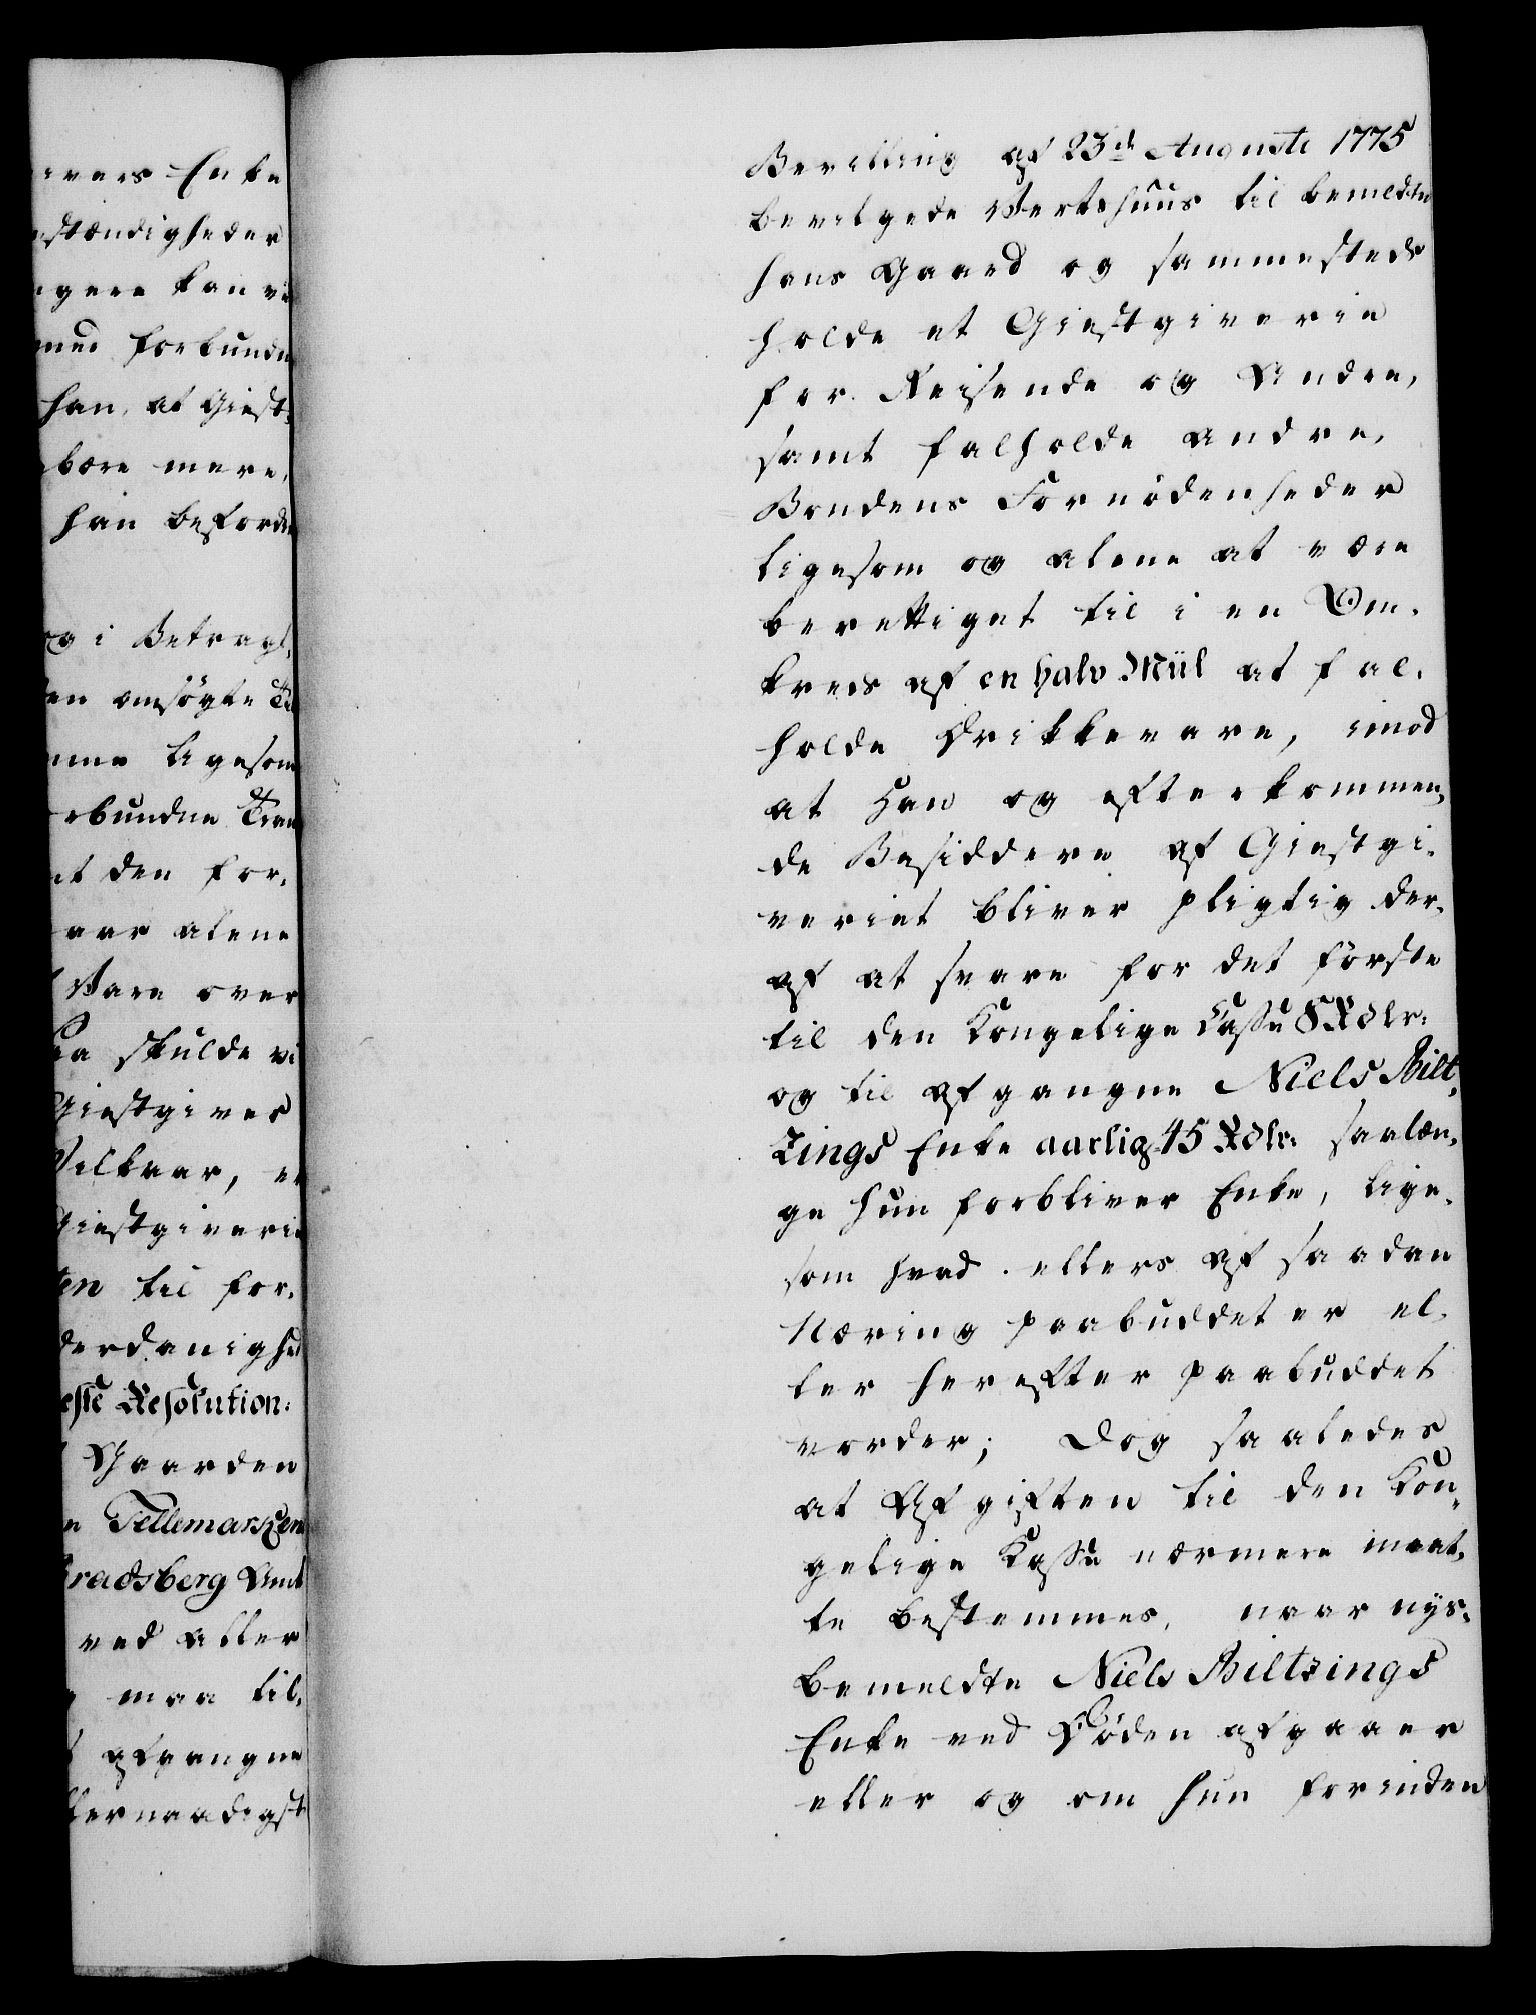 ivers Enke
stændigheder
gere kan vi
med forbundn
han, at Giest-
bære mere,
han beford
g i Betragt-
en ansøgte
me ligesom
rbundne
t den for-
aar alene
Vare over
saa skulde vi
Giestgiver
Vilkaar, e
Giestgiveri
ten til for-
derdanighed
este Resolution:
Gaarden
n Tellemarken
Bradsberg Amt
ved aller
maa til-
afgangne
llernaadigst
Bevilling af 23de Augusti 1775
bevilgede Vertshuus til bemeldte
hans Gaard og sammesteds
holde et Giestgiverie
for Reisende og Andre,
samt falholde andre,
Bondens Fornødenheder
ligesom og alene at være
berettiget til i en Om-
kreds af en halv Miil at fal-
holde Drikkevare, imod
at han og efterkommen-
de Besiddere af Giestgi-
veriet bliver pligtig der-
af at svare for det første
til den Kongelige Casse 8 Rdlr:
og til afgangne Niels Bilt-
zings Enke aarlig 45 Rdlr: saalæn-
ge hun forbliver Enke, lige-
som hvad ellers af saadan
Næring paabuddet er el-
ler herefter paabuddet
vorder; Dog saaledes
at Afgiften til den Kon-
gelige Kasse nærmere maat-
te bestemmes, naar nys-
bemeldte Niels Biltzings
Enke ved Døden afgaaer
eller og om hun forinden